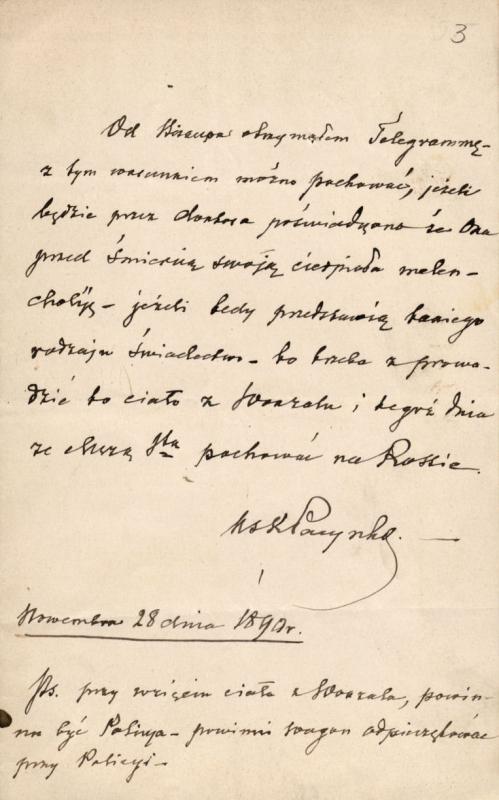 3
Od Biskupa otrzymałem Telegrammę
z tym warunkiem możno pochować, jeżeli
będzie przez doktora poświadczono że Ona
przed śmiercią swoją cierpiała melen-
choliją – jeżeli tedy przedstawią takiego
rodzaju świadectwo – to trzeba z prowa-
dzić to ciało z Woxzalu i tegoż dnia
ze mszą Stą pochować na Rossie.
28 dnia 1890 r.
Ps. przy wzięciu ciała z Woxzala, powin-
na być Policya – powinni wagon odpieczętować
przy Policyi –